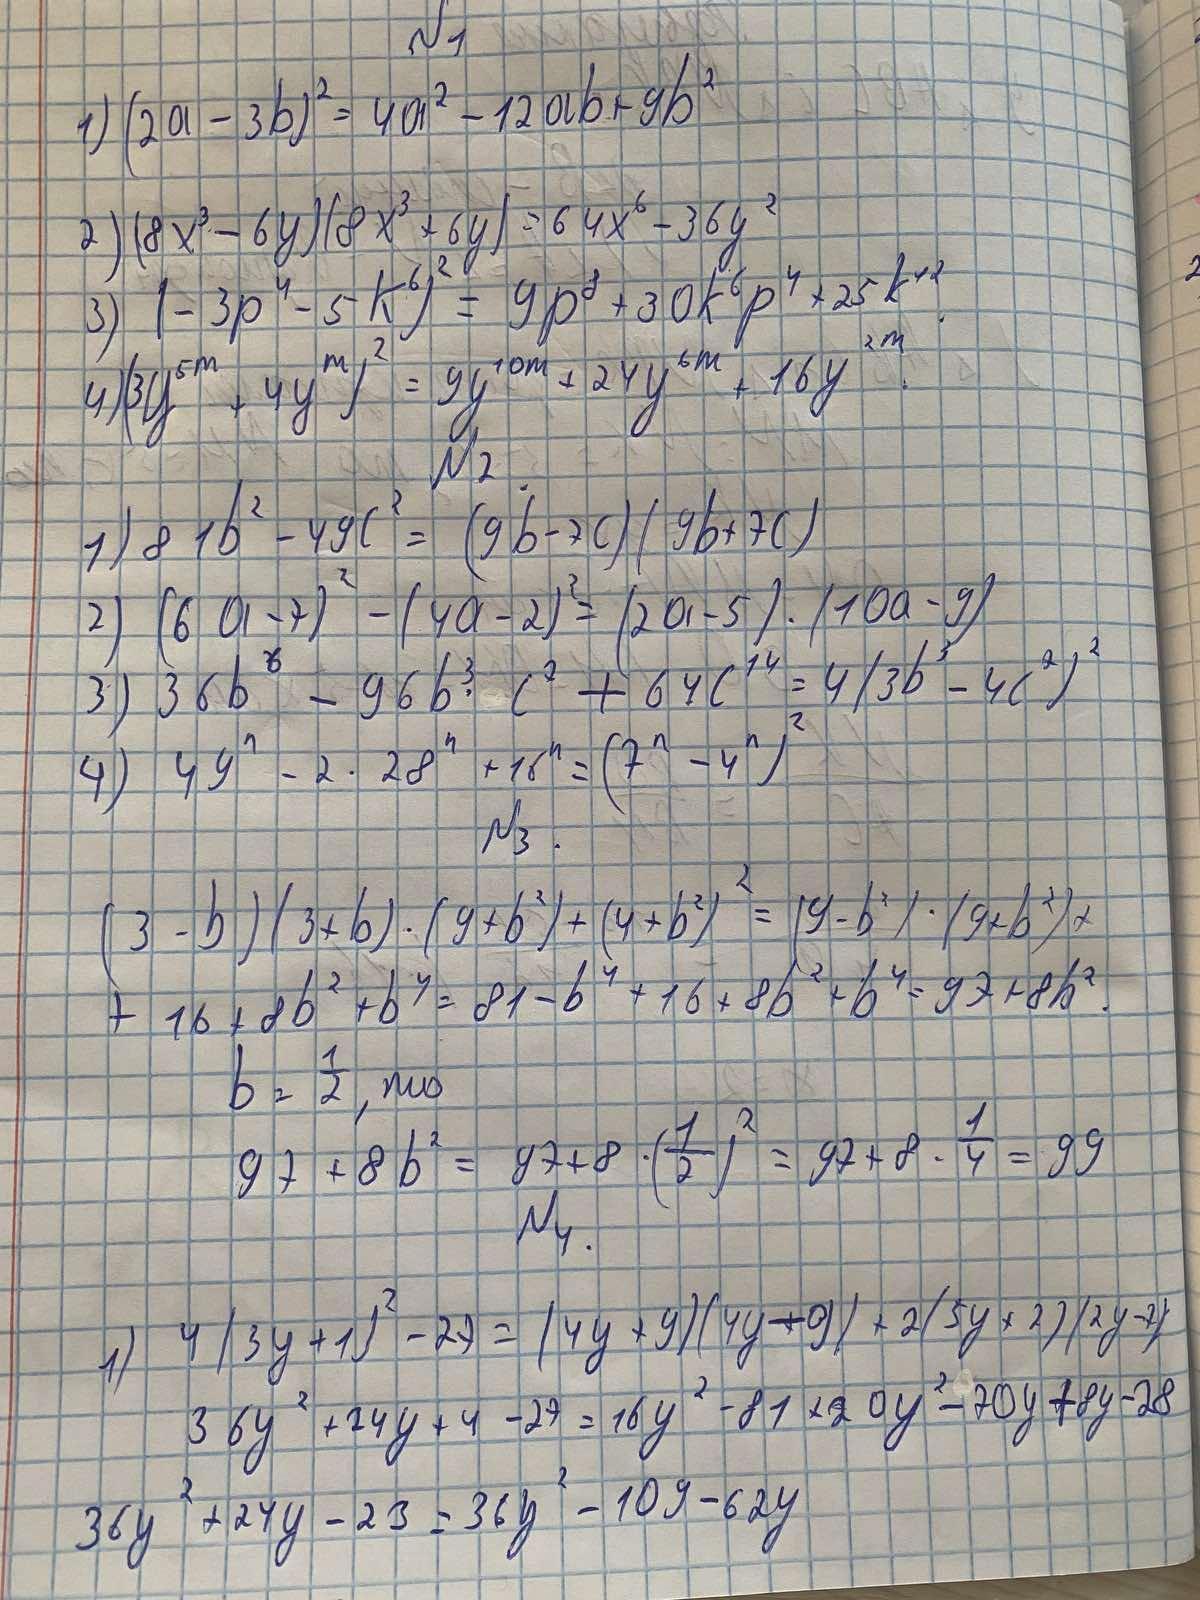 N1
1) (2a - 3b)² = 4a² - 12ab + 9b²
2) (8x³ - 6y)(8x³ + 6y) = 64x⁶ - 36y²
3) (-3p⁴ - 5k⁶)² = 9p⁸ + 30k⁶p⁴ + 25k¹².
4) (3y⁵ᵐ + 4yᵐ)² = 9y¹⁰ᵐ + 24y⁶ᵐ + 16y²ᵐ.
N2.
1) 81b² - 49c² = (9b - 7c)(9b + 7c)
2) (6a - 7)² - (4a - 2)² = (2a - 5)·(10a - 9)
3) 36b⁶ - 96b³·c⁷ + 64c¹⁴ = 4(3b³ - 4c⁷)²
4) 49ⁿ - 2·28ⁿ + 16ⁿ = (7ⁿ - 4ⁿ)²
N3.
(3 - b)(3 + b)·(9 + b²) + (4 + b²)² = (9 - b²)·(9 + b²) +
+ 16 + 8b² + b⁴ = 81 - b⁴ + 16 + 8b² + b⁴ = 97 + 8b².
b = 1/2, то
97 + 8b² = 97 + 8·(1/2)² = 97 + 8·1/4 = 99
N4.
1) 4(3y + 1)² - 27 = (4y + 9)(4y - 9) + 2(5y + 2)(2y - 7)
36y² + 24y + 4 - 27 = 16y² - 81 + 20y² - 70y + 8y - 28
36y² + 24y - 23 = 36y² - 109 - 62y